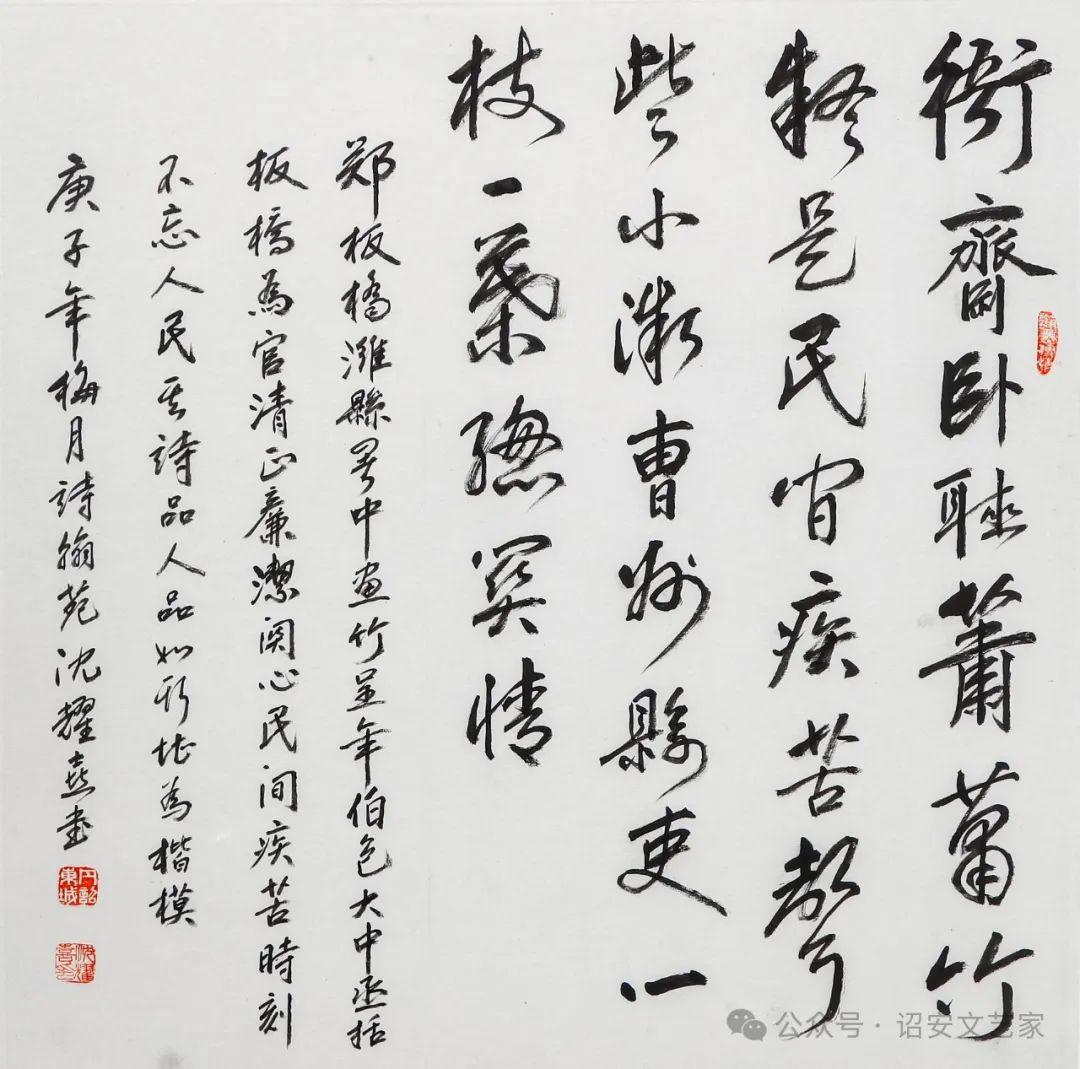 衙齋卧聽蕭蕭竹
疑是民间疾苦聲
些小微曹州縣吏一
枝一葉總関情
郑板橋濰縣署中畫竹呈年伯包大中丞括
板橋為官清正廉潔関心民间疾苦時刻
不忘人民其詩品人品如斯堪為楷模
庚子年梅月詩翰苑沈耀喜書
丹詔東城
公众号·诏安文艺家